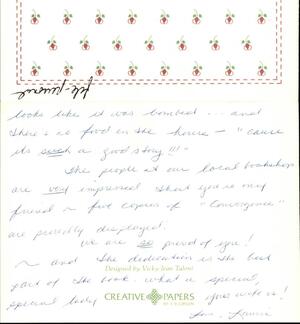 file-personal
looks like it was bombed ... and
there's no food in the house - "'cause
its such a good story!!!"
The people at our local bookshop
are very impressed that you're my
friend ~ five copies of "Convergence"
are proudly displayed.
We are so proud of you!
~ and the dedication is the best
Designed by Vicky Jean
part of the book. What a special,
special lady
CREATIVE PAPERS
Love,